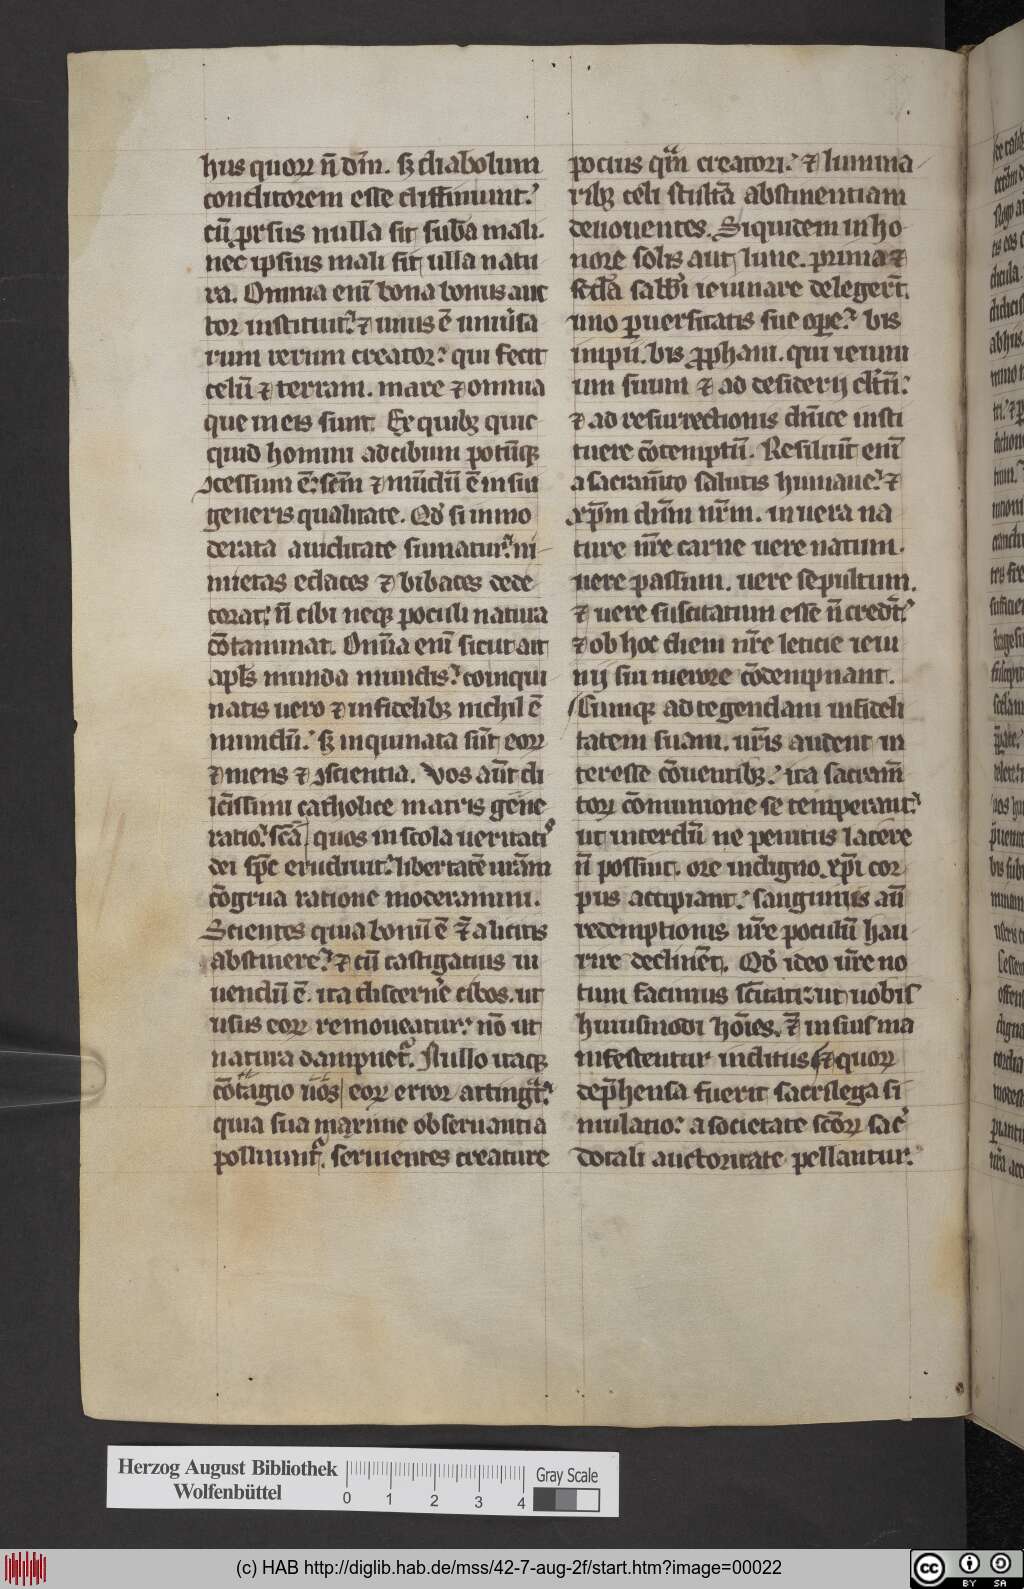 hus quoꝝ n̄ dm̄. sꝫ diabolum
conditorem esse diffiniunt.
cū ꝓrsus nulla sit suba mali.
nec ipsius mali sit ulla natu
ra. Omnia eni bona bonus auc
tor instituit. ⁊ unus ē uniusa
rum rerum creator. qui fecit
celū ⁊ terram. mare ⁊ omnia
que in eis sunt. Ex quibꝫ quic
quid homini ad cibum potūqꝫ
ↄcessum ē. scm̄ ⁊ mūdū ē in sui
generis qualitate. Qd si inmo
derata auiditate sumatur. ni
mietas edaces ⁊ bibaces dede
corat. n̄ cibi neqꝫ poculi natura
cōtaminat. Omīa eni sicut ait
apls munda mundis. coinqui
natis uero ⁊ infidelibꝫ nichil ē
mundū. sꝫ inquinata sūt eoꝝ
⁊ mens ⁊ ↄscientia. Vos aūt di
lcissimi catholice matris gene
ratio. sca quos in scola ueritatis
dei spc erudiuit. libertatē ur̄am
cōgrua ratione moderamini.
Scientes quia bonū ē ⁊ a licitis
abstinere. ⁊ cū castigatius ui
uendū ē. ita discerne cibos. ut
usus eoꝝ remoueatur. nō ut
natura dampnet. Nullo itaqꝫ
cōtagio uos eoꝝ error attingat.
quia sua maxime obseruantia
polluunt. seruientes creature
pocius qm̄ creatori. ⁊ lumina
ribꝫ celi stultā abstinentiam
deuouentes. Siquidem in ho
nore solis aut lune. prima ⁊
scda sabbi ieiunare delegert.
uno ꝑuersitatis sue ope. bis
impii. bis ꝓphani. qui ieiuni
um suum ⁊ ad siderū cltū.
⁊ ad resurrectionis dnice insti
tuere cōtemptū. Resiliūt eni
a sacramto salutis humane. ⁊
xpm dnm nrm. in uera na
ture nre carne uere natum.
uere passum. uere sepultum.
⁊ uere suscitatum esse n̄ credt.
⁊ ob hoc diem nre leticie ieiu
nij sui merore cōdempnant.
Cumqꝫ ad tegendam infideli
tatem suam. nris audent in
teresse cōuentibꝫ. ita sacram
toꝝ cōmunione se temperant.
ut interdū ne penitus latere
n̄ possint. ore indigno. xpi cor
pus accipiant. sanguinis aū
redemptionis nre poculū hau
rire declinēt. Qd ideo ure no
tum facimus scitati. ut uobis
huiusmodi hoies. ⁊ in sius ma
nifestentur inditus ⁊ quoꝝ
dephensa fuerit sacrilega si
mulatio. a societate scoꝝ sac
dotali auctoritate pellantur.
Herzog August Bibliothek
Wolfenbüttel
0 1 2 3 4
Gray Scale
(c) HAB http://diglib.hab.de/mss/42-7-aug-2f/start.htm?image=00022
cc BY SA